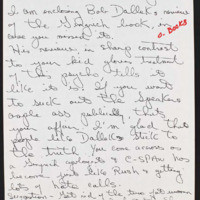 I am enclosing Bob Dallek's review
of the Gingrich book, in
case you missed it.
O. BOOKS
His review, in sharp contrast
to your kid gloves treatment
of the psycho, tells it
like it is! If you want
to suck out the Speakers
ample ass publicly that's
your affair. I'm glad that
people like Dallek stick to
the truth. You come across as
a Gingrich apologist & C-SPAN has
become just like Rush & getting
lots of hate calls.
Suggestion: Get rid of the two